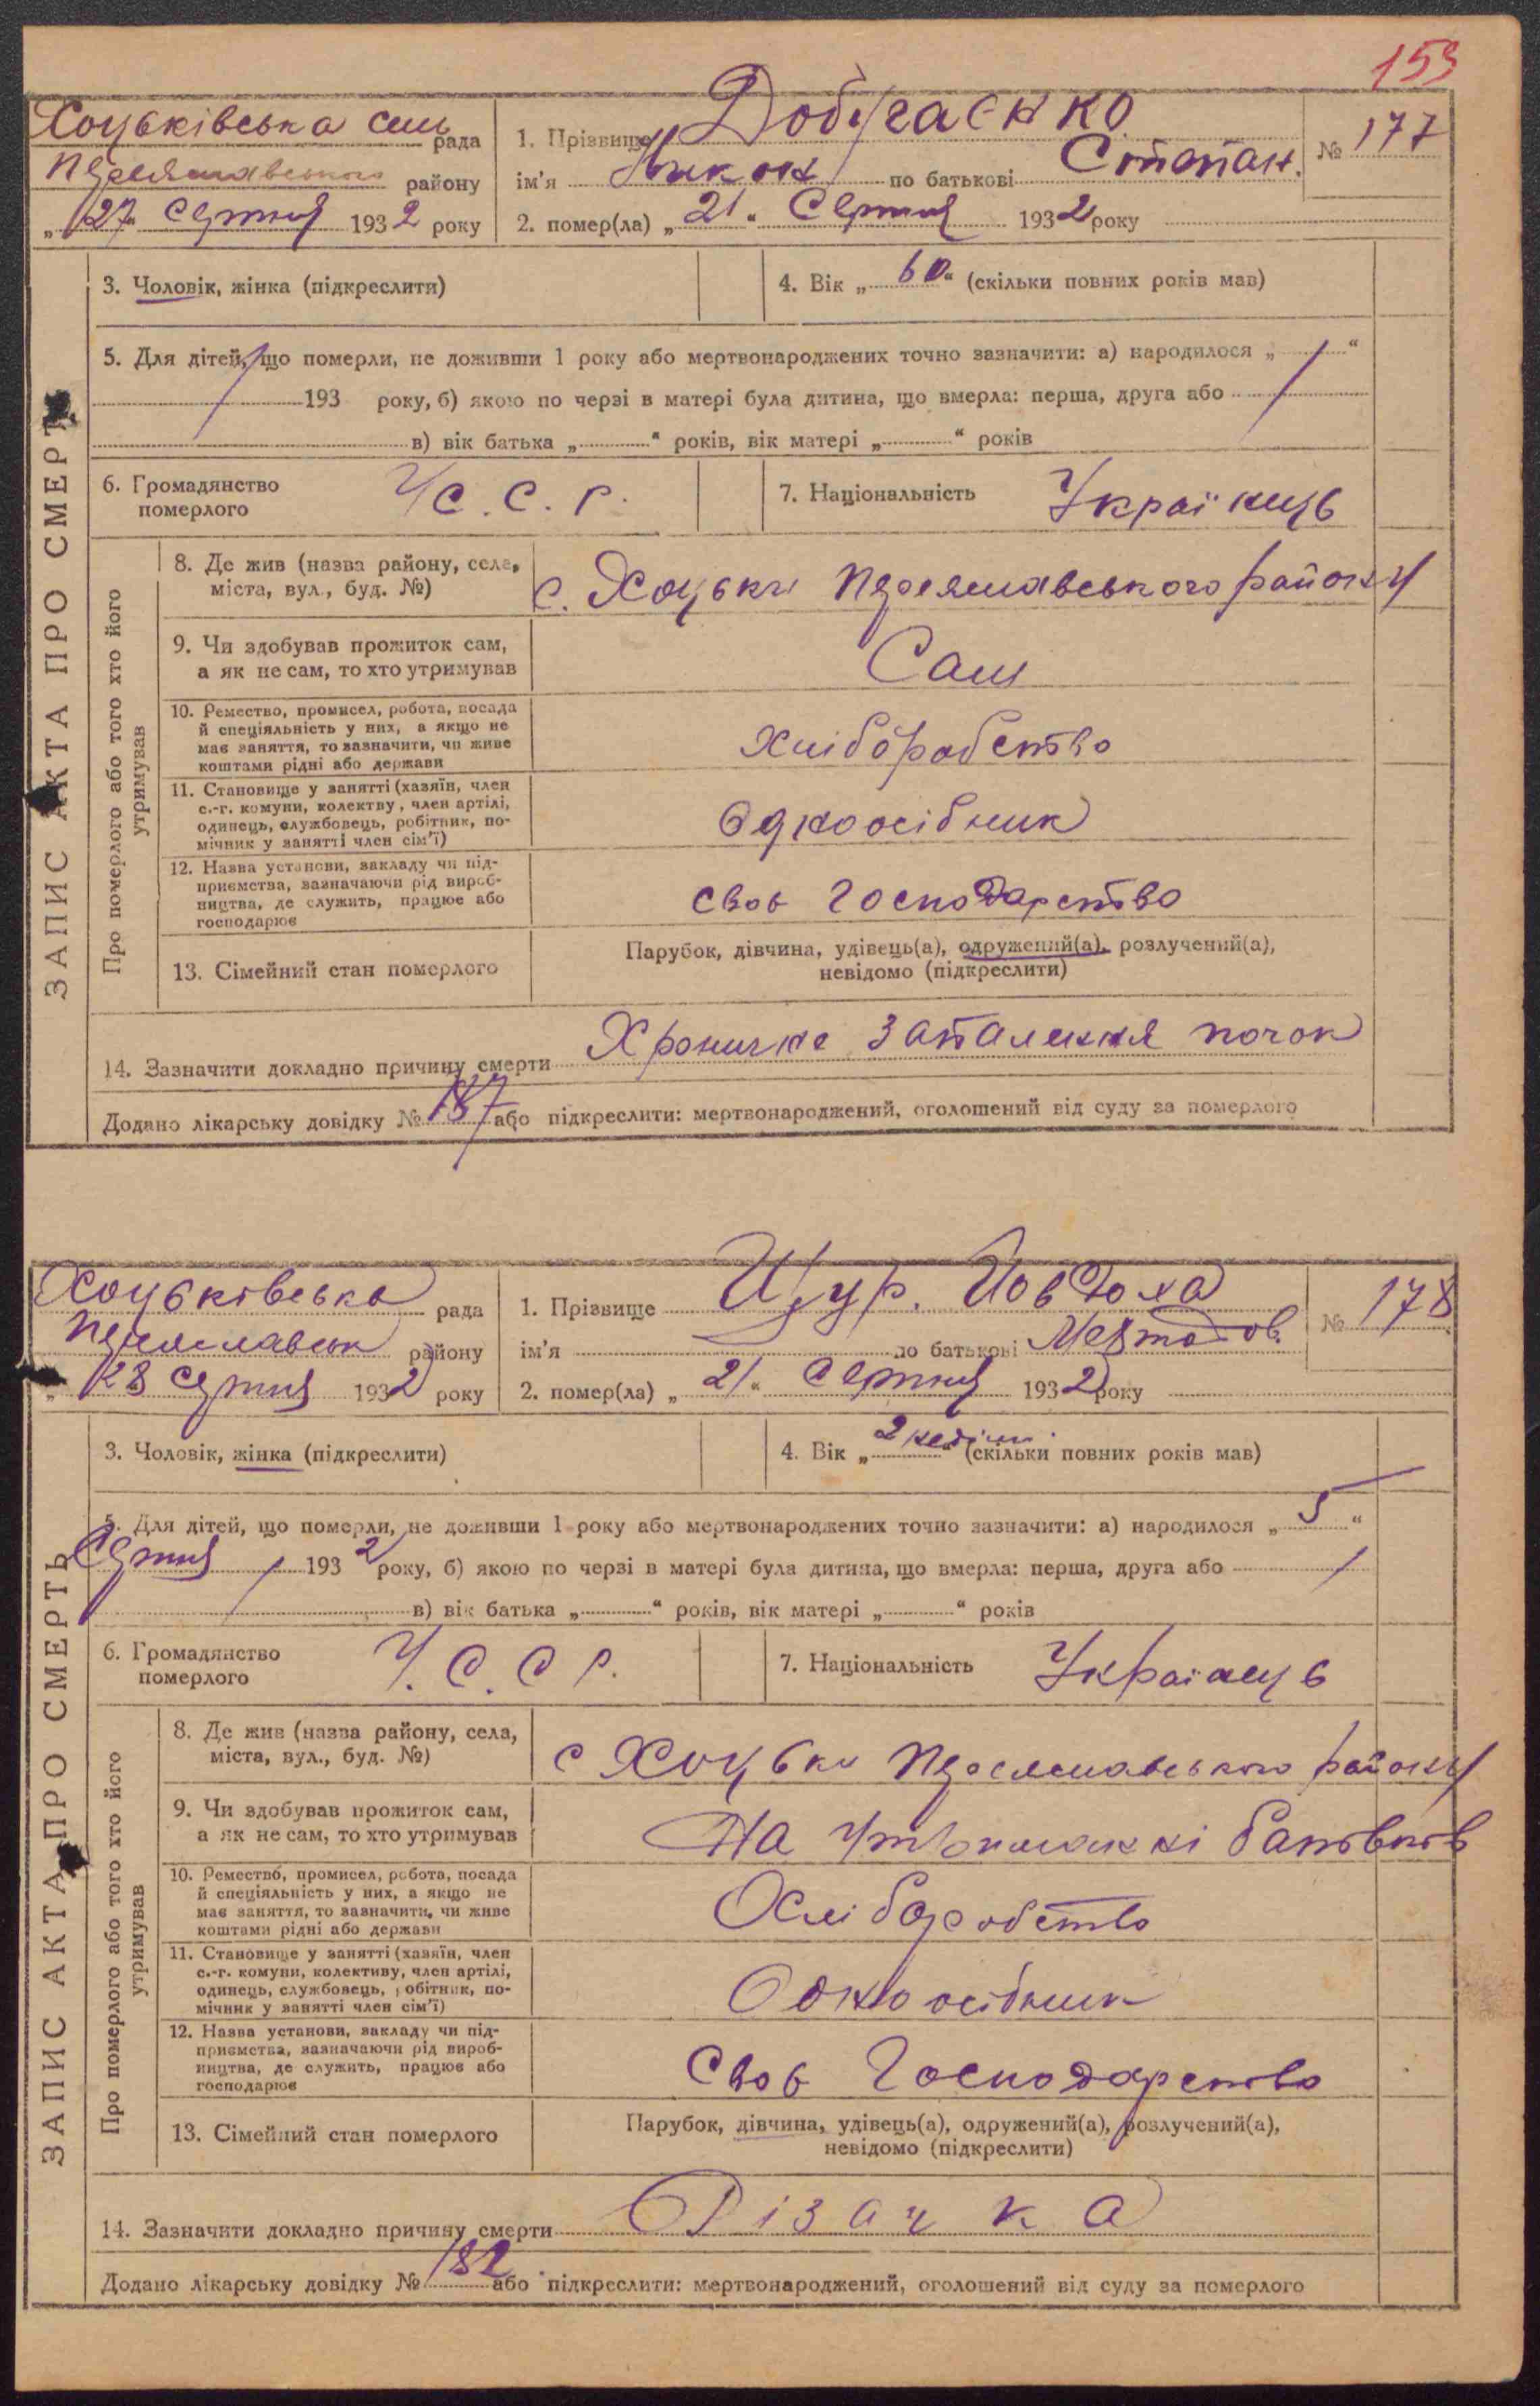 153
Хоцьківська сель рада
Переяславського району
„27“ Серпня 1932 року
1. Прізвище Добугаєнко
ім'я Никон по батькові Степан.
№ 177
2. помер(ла) „21“ Серпня 1932 року
3. Чоловік, жінка (підкреслити)
4. Вік „60“ (скільки повних років мав)
5. Для дітей, що померли, не доживши 1 року або мертвонароджених точно зазначити: а) народилося „ “
193 року, б) якою по черзі в матері була дитина, що вмерла: перша, друга або
в) вік батька „ “ років, вік матері „ “ років
6. Громадянство
померлого
У.С.С.Р.
7. Національність Українець
8. Де жив (назва району, села,
міста, вул., буд. №)
с. Хоцьки Переяславського району
9. Чи здобував прожиток сам,
а як не сам, то хто утримував
Сам
10. Ремество, промисел, робота, посада
й спеціяльність у них, а якщо не
має заняття, то зазначити, чи живе
коштами рідні або держави
Хліборобство
11. Становище у занятті (хазяїн, член
с.-г. комуни, колектву, член артілі,
одинець, службовець, робітник, по-
мічник у занятті член сім'ї)
Одноосібник
12. Назва установи, закладу чи під-
приємства, зазначаючи рід вироб-
ництва, де служить, працює або
господарює
своє Господарство
13. Сімейний стан померлого
Парубок, дівчина, удівець(а), одружений(а), розлучений(а),
невідомо (підкреслити)
14. Зазначити докладно причину смерти Хроничне Запалення почок
Додано лікарську довідку № 187 або підкреслити: мертвонароджений, оголошений від суду за померлого
ЗАПИС АКТА ПРО СМЕРТЬ
Про померлого або того хто його
утримував
Хоцьківська рада
Переяславськ району
„28 Серпня 1932 року
1. Прізвище Щур. Йовдоха
ім'я по батькові
№ 178
2. помер(ла) „21“ Серпня 1932 року
3. Чоловік, жінка (підкреслити)
4. Вік „2 неділи“ (скільки повних років мав)
5. Для дітей, що померли, не доживши 1 року або мертвонароджених точно зазначити: а) народилося „5“
Серпня 1932 року, б) якою по черзі в матері була дитина, що вмерла: перша, друга або
в) вік батька „ “ років, вік матері „ “ років
6. Громадянство
померлого
У.С.С.Р.
7. Національність Українець
8. Де жив (назва району, села,
міста, вул., буд. №)
с Хоцьки Переяславського району
9. Чи здобував прожиток сам,
а як не сам, то хто утримував
На утриманні батьків
10. Ремество, промисел, робота, посада
й спеціяльність у них, а якщо не
має заняття, то зазначити, чи живе
коштами рідні або держави
Хліборобство
11. Становище у занятті (хазяїн, член
с.-г. комуни, колективу, член артілі,
одинець, службовець, робітник, по-
мічник у занятті член сім'ї)
Одноосібник
12. Назва установи, закладу чи під-
приємства, зазначаючи рід вироб-
ництва, де служить, працює або
господарює
Своє Господарство
13. Сімейний стан померлого
Парубок, дівчина, удівець(а), одружений(а), розлучений(а),
невідомо (підкреслити)
14. Зазначити докладно причину смерти Різачка
Додано лікарську довідку № 182 або підкреслити: мертвонароджений, оголошений від суду за померлого
ЗАПИС АКТА ПРО СМЕРТЬ
Про померлого або того хто його
утримував